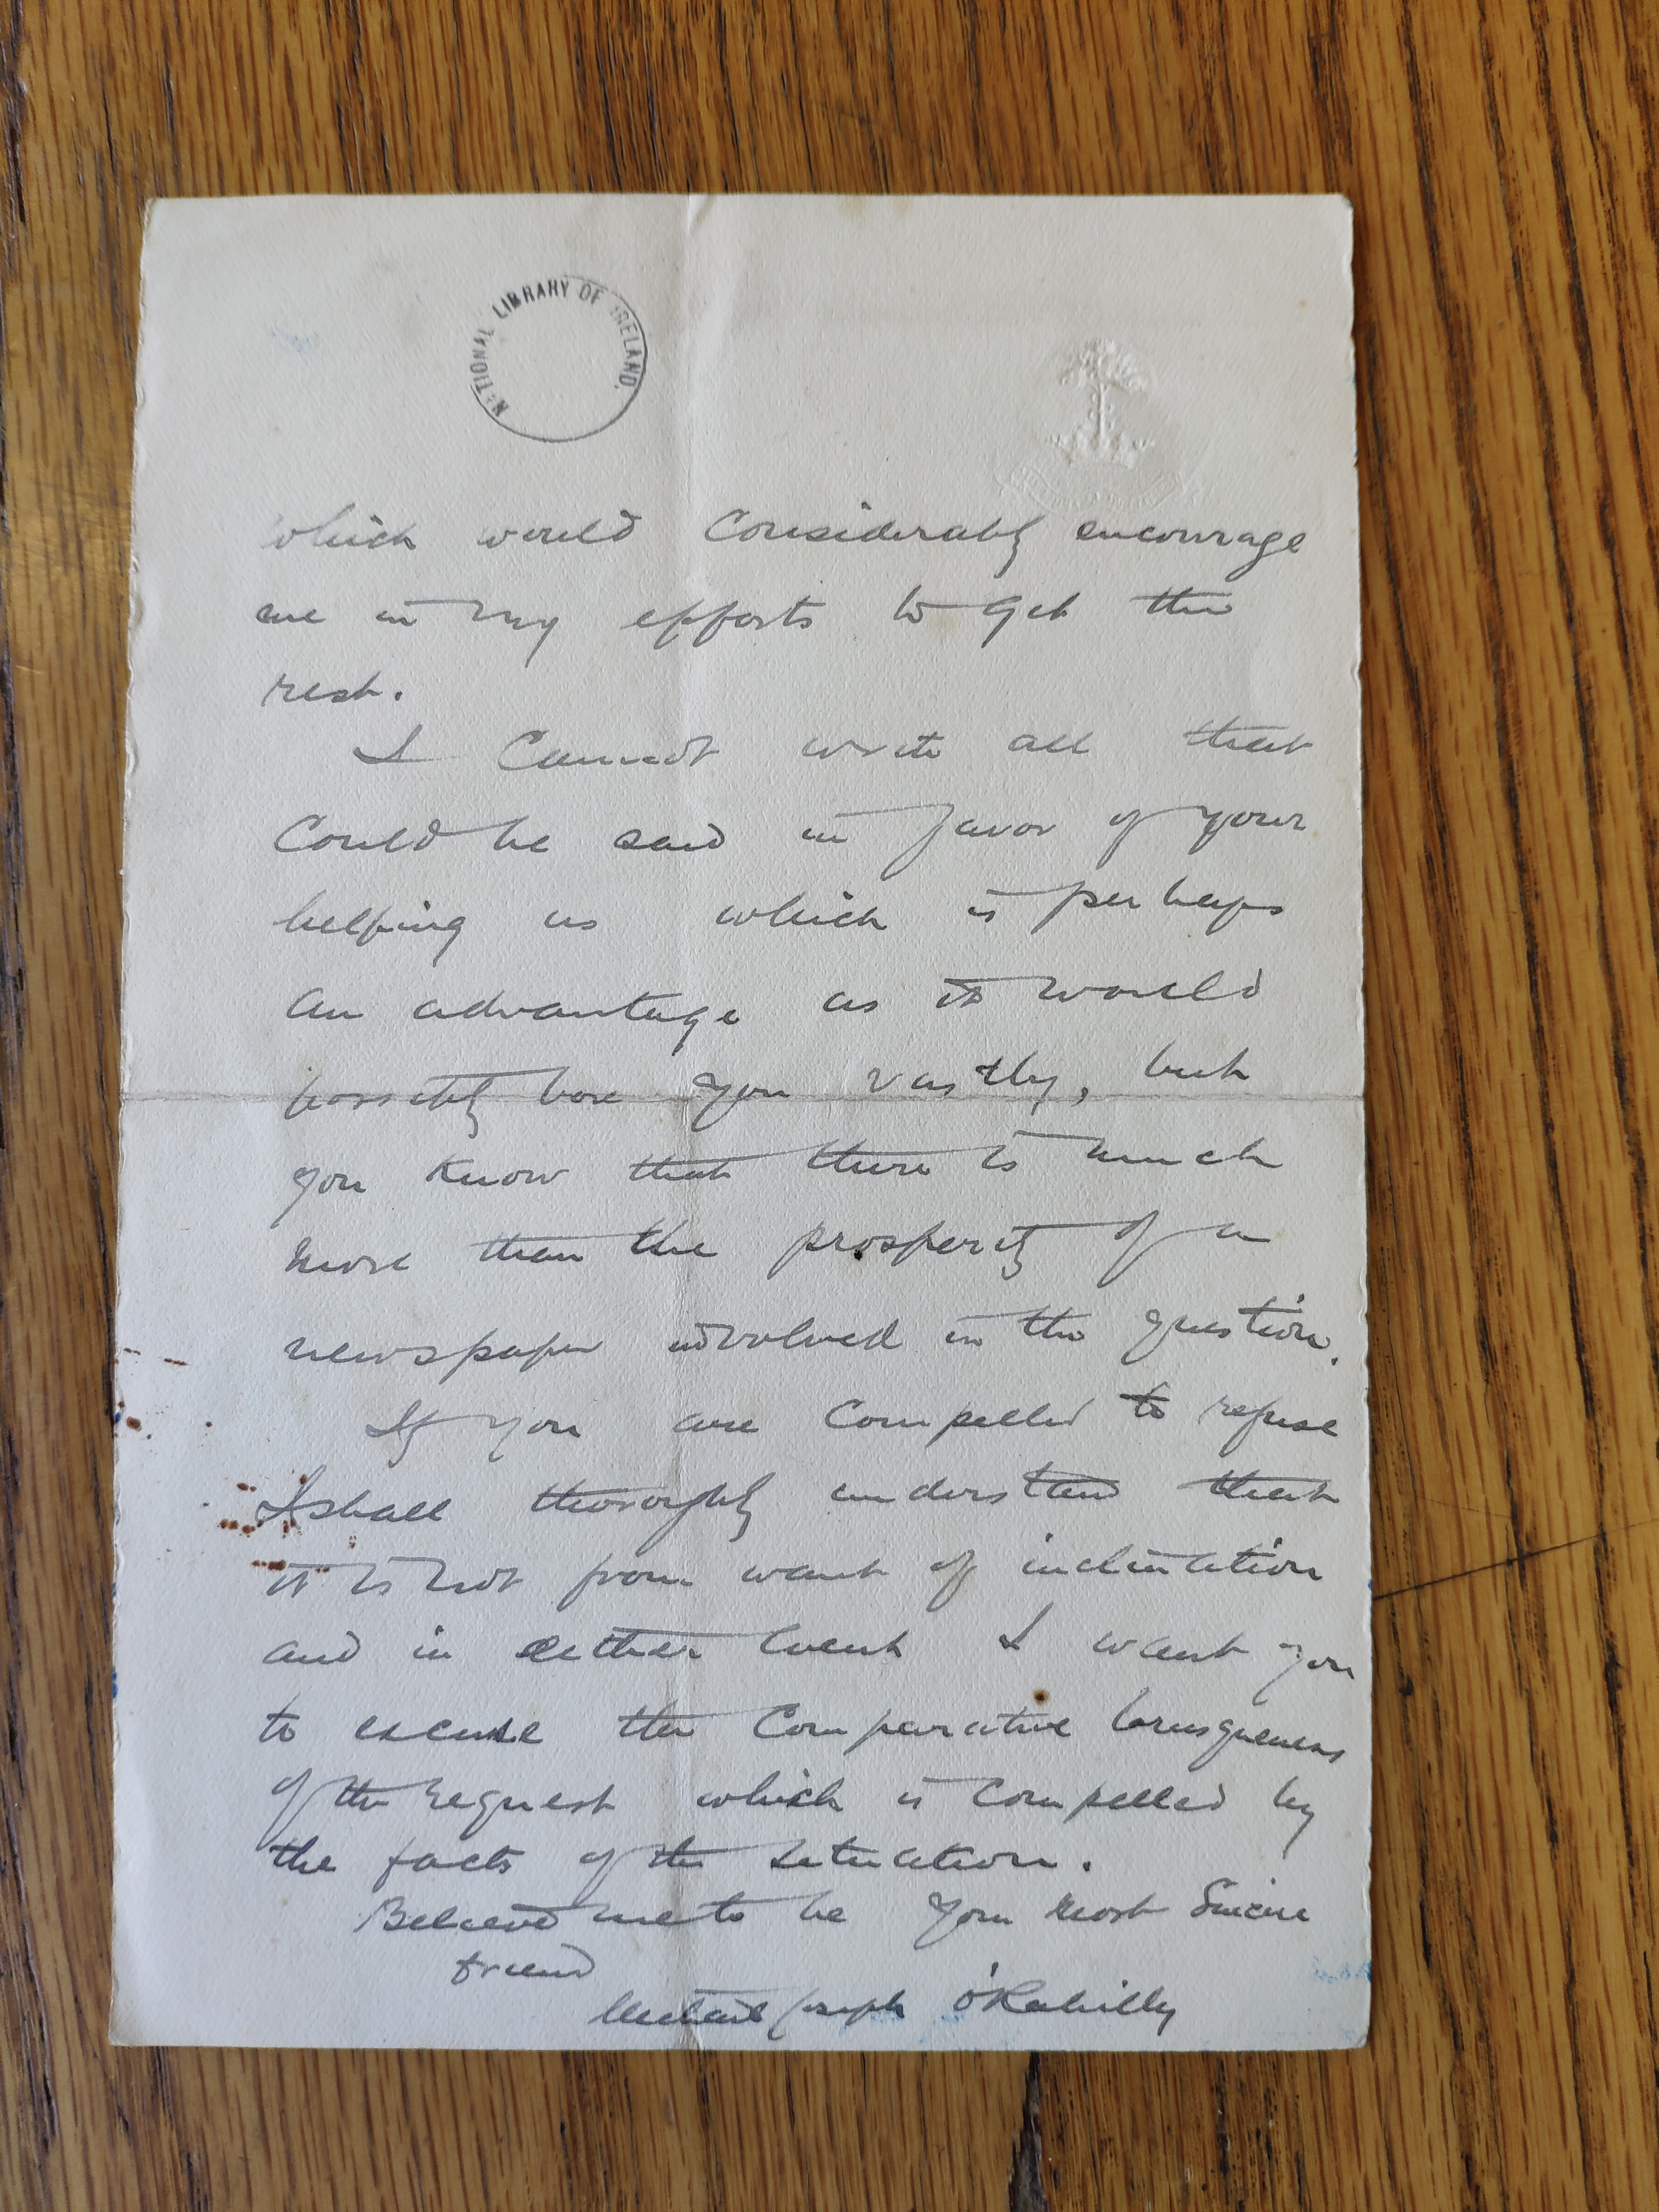 NATIONAL LIBRARY OF IRELAND.
which would considerably encourage
me in my efforts to get the
rest.
I cannot write all that
could be said in favor of your
helping us which is perhaps
an advantage as it would
possibly bore you vastly, but
you know that there is much
more than the prosperity of a
newspaper involved in the question.
If you are compelled to refuse
I shall thoroughly understand that
it is not from want of inclination
and in either event I want you
to excuse the comparative brusqueness
of the request which is compelled by
the facts of the situation.
Believe me to be your most sincere
friend
Michael Joseph O'Rahilly